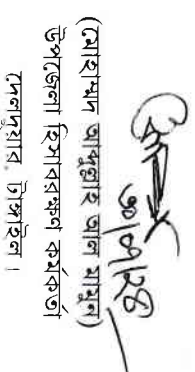 ৩০/০৭/২৪
(মোহাম্মদ আব্দুল্লাহ আল মামুন)
উপজেলা হিসাবরক্ষণ কর্মকর্তা
দেলদুয়ার, টাঙ্গাইল।